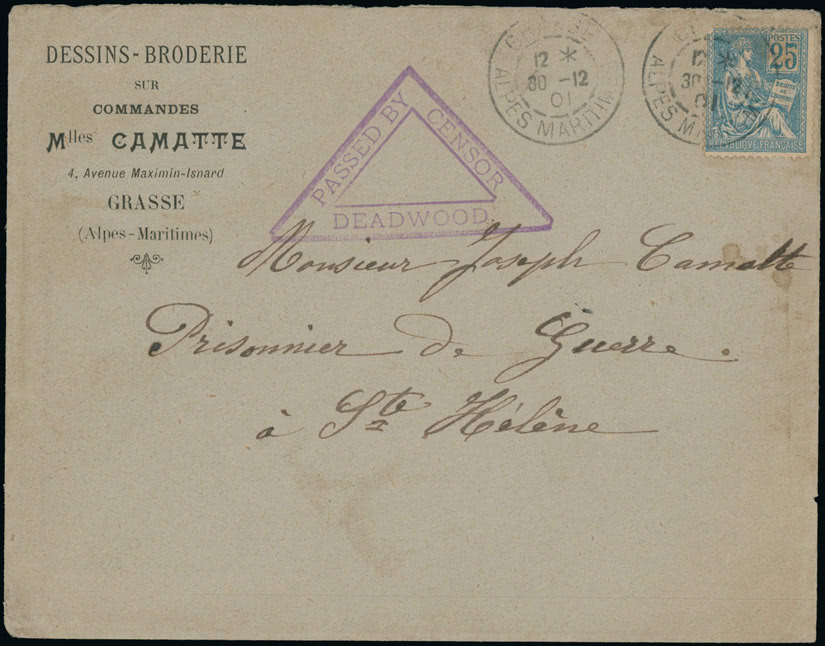 DESSINS-BRODERIE
SUR
COMMANDES
Mlles CAMATTE
4, Avenue Maximin-Isnard
GRASSE
(Alpes-Maritimes)
PASSED BY CENSOR
DEADWOOD
12 *
30 -12
01
ALPES MARITIM
12 *
30 -12
01
ALPES M
POSTES
25
DROITS DE L'HOMME
REPUBLIQUE FRANÇAISE
Monsieur Joseph Camatte
Prisonnier de Guerre.
à Ste Hélène